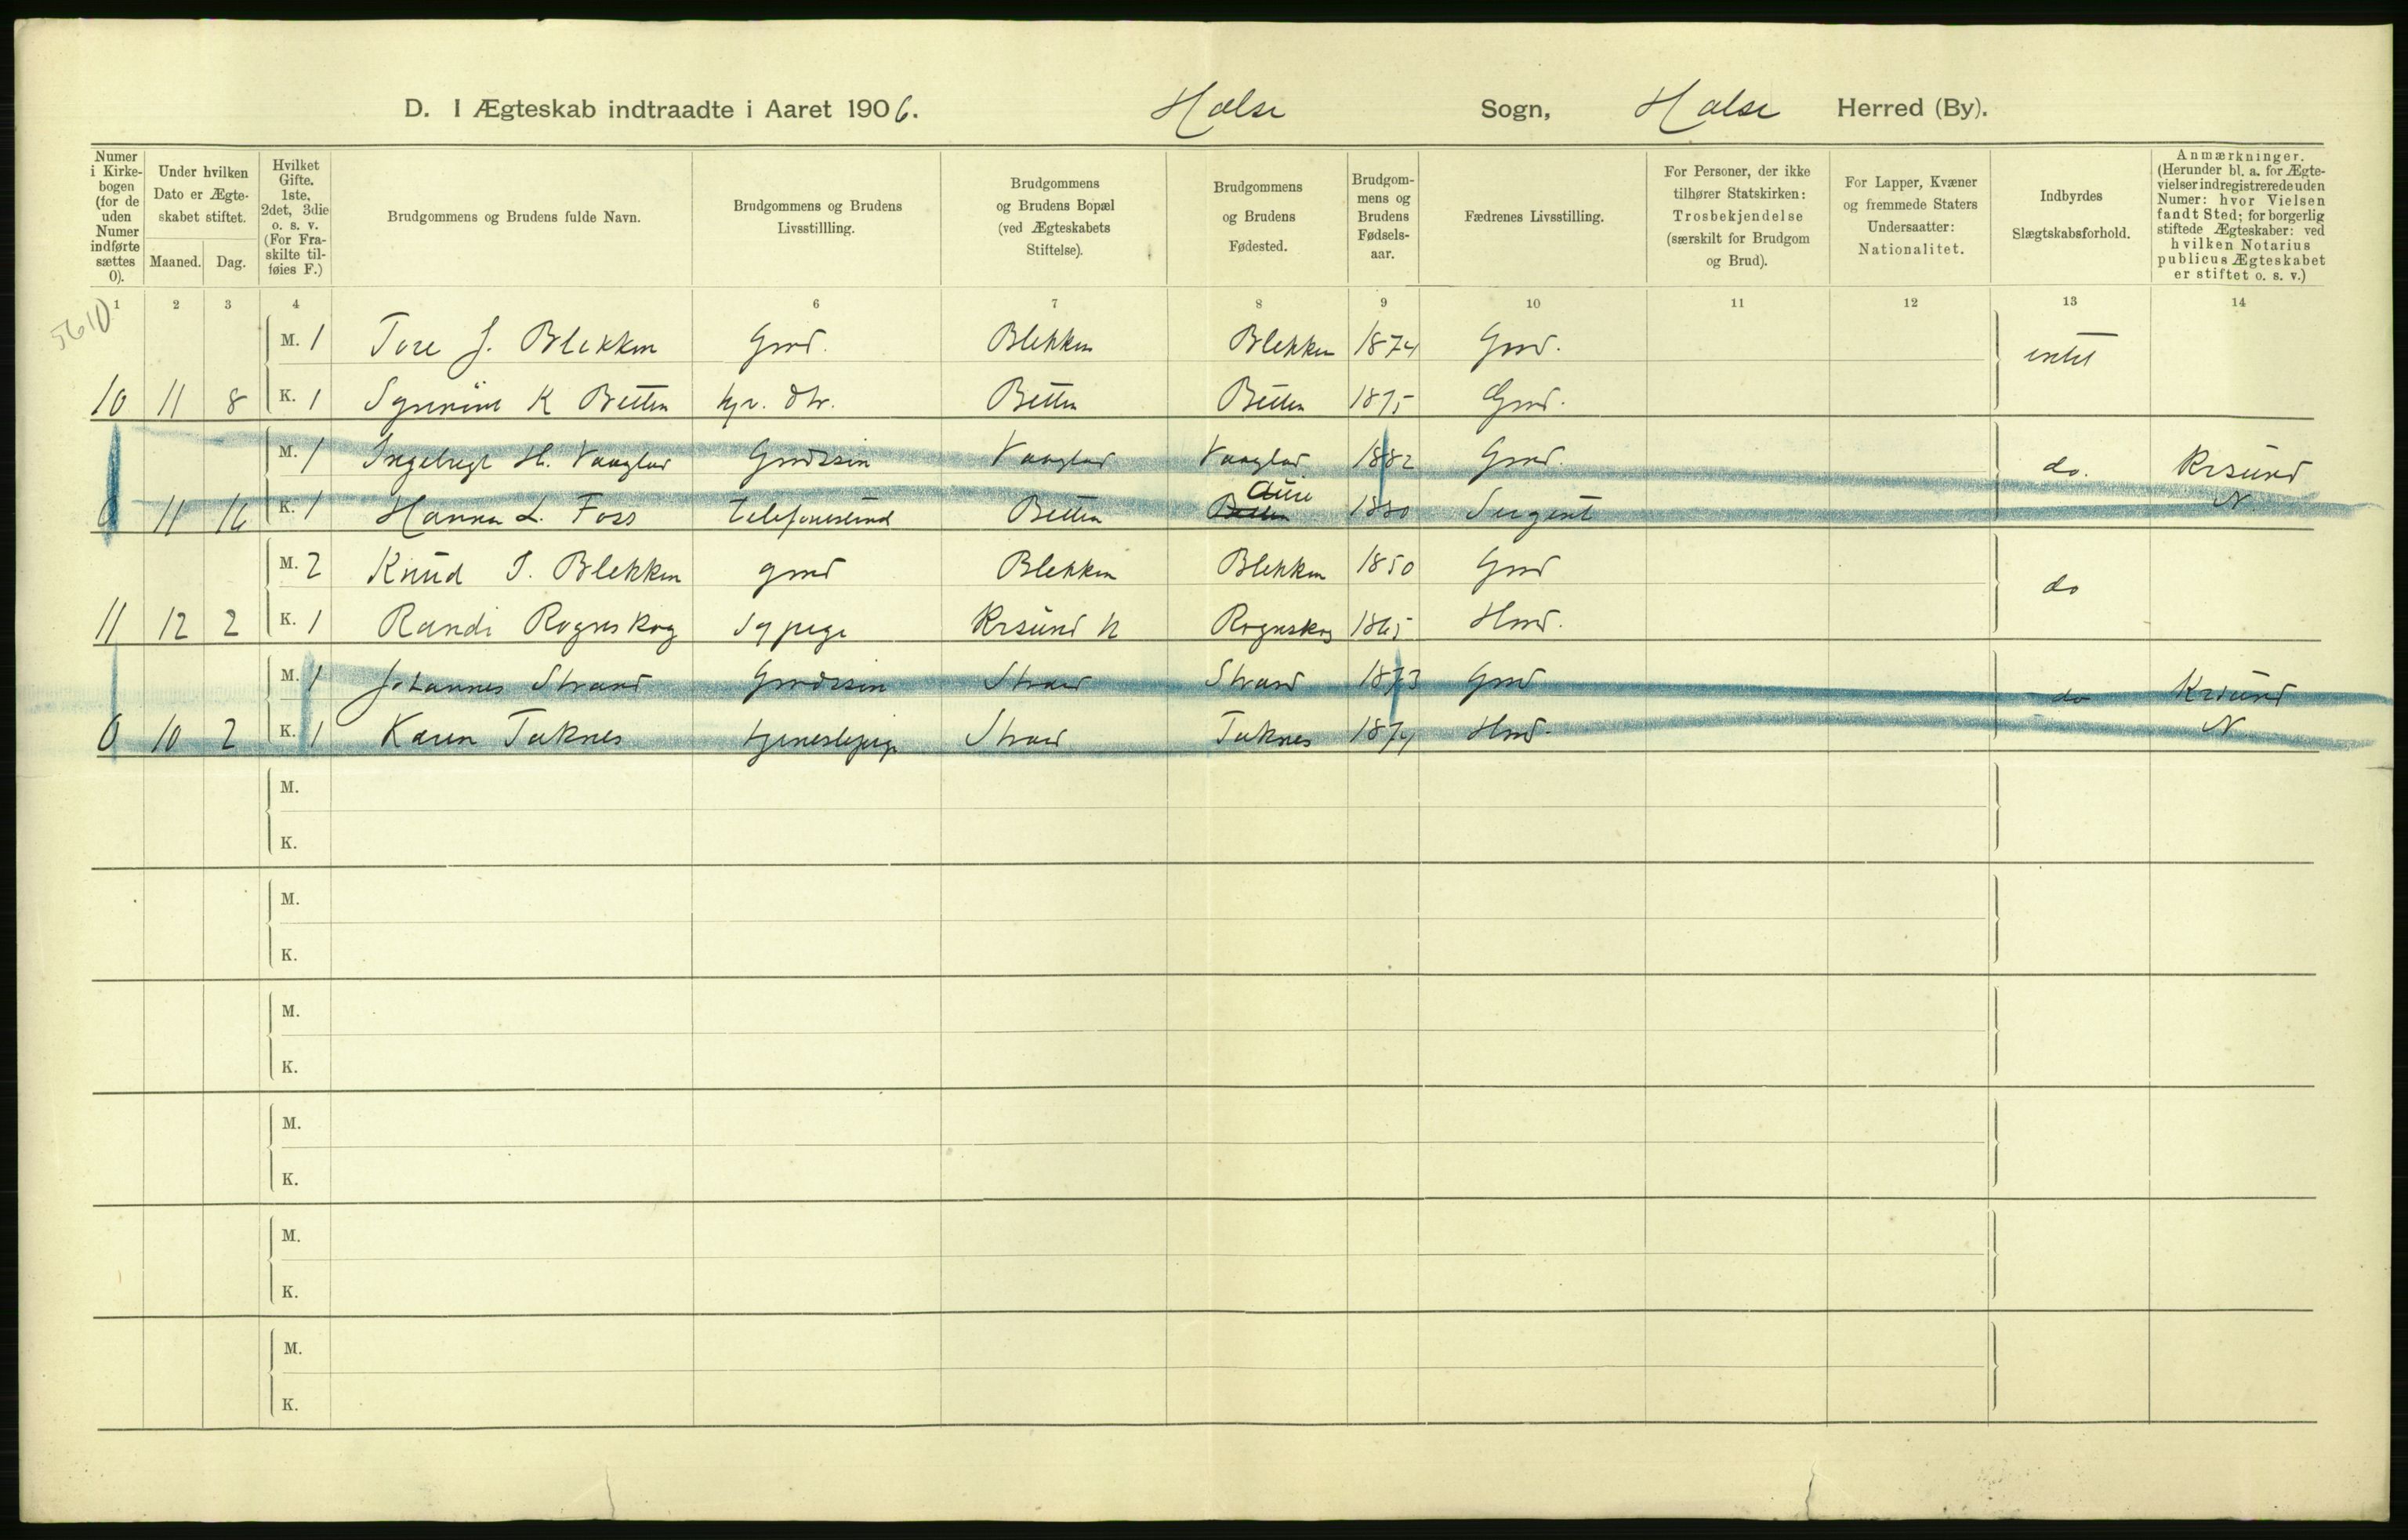 D. I Ægteskab indtraadte i Aaret 1906. Halse Sogn, Halse Herred (By).
Numer i Kirkebogen (for de uden Numer indførte sættes 0).
Under hvilken Dato er Ægteskabet stiftet.
Maaned. Dag.
Hvilket Gifte. 1ste, 2det, 3die o. s. v. (For Fraskilte tilføies F.)
Brudgommens og Brudens fulde Navn.
Brudgommens og Brudens Livsstillling.
Brudgommens og Brudens Bopæl (ved Ægteskabets Stiftelse).
Brudgommens og Brudens Fødested.
Brudgommens og Brudens Fødselsaar.
Fædrenes Livsstilling.
For Personer, der ikke tilhører Statskirken: Trosbekjendelse (særskilt for Brudgom og Brud).
For Lapper, Kvæner og fremmede Staters Undersaatter: Nationalitet.
Indbyrdes Slægtskabsforhold.
Anmærkninger. (Herunder bl. a. for Ægtevielser indregistrerede uden Numer: hvor Vielsen fandt Sted; for borgerlig stiftede Ægteskaber: ved hvilken Notarius publicus Ægteskabet er stiftet o. s. v.)
1 2 3 4 6 7 8 9 10 11 12 13 14
5610
M. 1 Tore J. Blekken Gmd. Blekken Blekken 1874 Gmd. intet
10 11 8 K. 1 K Betten Betten Betten 1875 Gmd.
M. 1 H. Vaaglad Gmdssøn Vaaglad Vaaglad 1882 Gmd. do. Krsund
Aure
0 11 16 K. 1 Hanna L. Foss Betten Betten 1880 Sergent N.
M. 2 Knud I. Blekken gmd Blekken Blekken 1850 Gmd do
11 12 2 K. 1 Randi Rognskog Sypige Krsund N Rognskog 1865 Hmd.
M. 1 Johannes Strand Gmdssøn Strand Strand 1873 Gmd do Krsund
0 10 2 K. 1 Karen Taknes tjenestepige Strand Taknes 1874 Hmd. N
M.
K.
M.
K.
M.
K.
M.
K.
M.
K.
M.
K.